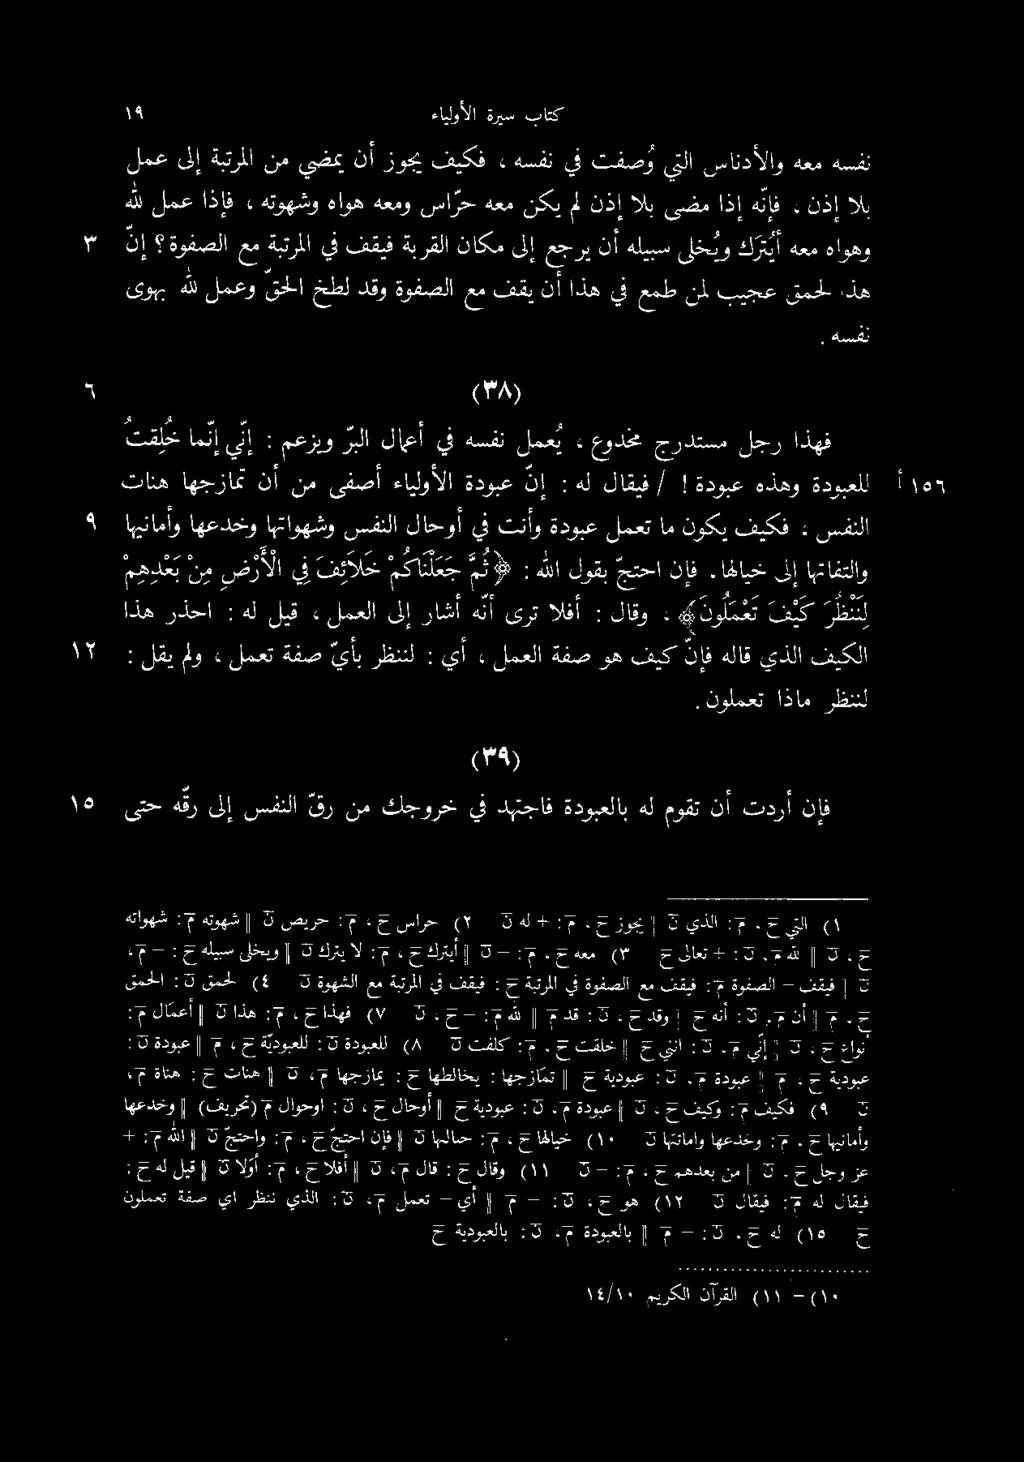 كتاب سيرة الأولياء ١٩
نفسه معه والأدناس التي وُصفت في نفسه ، فكيف يجوز أن يمضي من المرتبة إلى عمل
بلا إذن ، فإنّه إذا مضى بلا إذن لم يكن معه حرّاس ومعه هواه وشهوته ، فإذا عمل لله
وهواه معه أيُترَك ويُخلى سبيله أن يرجع إلى مكان القربة فيقف في المرتبة مع الصفوة؟ إنّ ٣
هذا لحمق عجيب لمن طمع في هذا أن يقف مع الصفوة وقد لطخ الحقّ وعمل لله بهوى
نفسه .
(٣٨) ٦
فهذا رجل مستدرج مخدوع ، يُعمل نفسه في أعمال البرّ ويزعم : إنّي إنّما خُلِقتُ
للعبودة وهذه عبودة ! / فيقال له : إنّ عبودة الأولياء أصفى من أن تمازجها هنات ١٥٦ أ
النفس ، فكيف يكون ما تعمل عبودة وأنت في أوحال النفس وشهواتها وخدعها وأمانيها ٩
والتفاتها إلى خيالها. فإن احتجّ بقول الله : ﴿ثُمَّ جَعَلْنَاكُمْ خَلَائِفَ فِي الْأَرْضِ مِنْ بَعْدِهِمْ
لِنَنْظُرَ كَيْفَ تَعْمَلُونَ﴾ ، وقال : أفلا ترى أنّه أشار إلى العمل ، قيل له : احذر هذا
الكيف الذي قاله فإنّ كيف هو صفة العمل ، أي : لننظر بأيّ صفة تعمل ، ولم يقل : ١٢
لننظر ماذا تعملون .
(٣٩)
فإن أردت أن تقوم له بالعبودة فاجتهد في خروجك من رقّ النفس إلى رقّه حتى ١٥
١) التي ح ، م : الذي ن || يجوز ح ، م : + له ن ٢) حراس ح ، م : حريص ن || شهوته م : شهواته
ح ، ن || لله م ، ن : + تعالى ح ٣) معه ح ، م : – ن || أيترك ح ، م : لا يترك ن || ويخلى سبيله ح : – م ،
ن | فيقف – الصفوة م : فيقف مع الصفوة في المرتبة ح : فيقف في المرتبة مع الشهوة ن ٤) لحمق ن : الحمق
ح ، م || أن م ، ن : أنه ح | وقد ح ، ن : قد م || لله م : – ح ، ن ٧) فهذا ح ، م : هذا ن || أعمال م :
انواع ح ، ن | إنّي م ، ن : انني ح || خلقت ح ، م : كلفت ن ٨) للعبودة ن : للعبوديّة ح ، م || عبودة ن :
عبودية ح ، م || عبودة م ، ن : عبودية ح || تمازجها : يخالطها ح : يمازجها م ، ن || هنات ح : هناة م ،
ن ٩) فكيف م : وكيف ح ، ن || عبودة م ، ن : عبودية ح || أوحال ح ، ن : اوحوال م (تحريف) || وخدعها
وأمانيها ح ، م : وخدعها واماناتها ن ١٠) خيالها ح ، م : حالها ن || فإن احتجّ ح ، م : واحتجّ ن || الله م : +
عز وجل ح ، ن || من بعدهم ح ، م : – ن ١١) وقال ح : قال م ، ن || أفلا ح ، م : أوَلا ن || قيل له ح :
فيقال له م : فيقال ن ١٢) هو ح ، ن : – م || أي – تعمل م ، ن : الذي ننظر اي صفة تعملون
ح ١٥) له ح ، ن : – م || بالعبودة م ، ن : بالعبودية ح
١٠) – ١١) القرآن الكريم ١٤/١٠